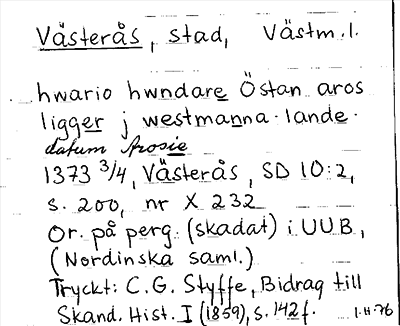 Västerås, stad, Västm.l.
hwario hwndare Östan aros
ligger j westmanna lande.
datum Arosie
1373 3/4, Västerås, SD 10:2,
s. 200, nr X 232
Or. på perg. (skadat) i UUB,
(Nordinska saml.)
Tryckt: C.G. Styffe, Bidrag till
Skand. Hist. I (1859), s. 142 f. 1.H.76